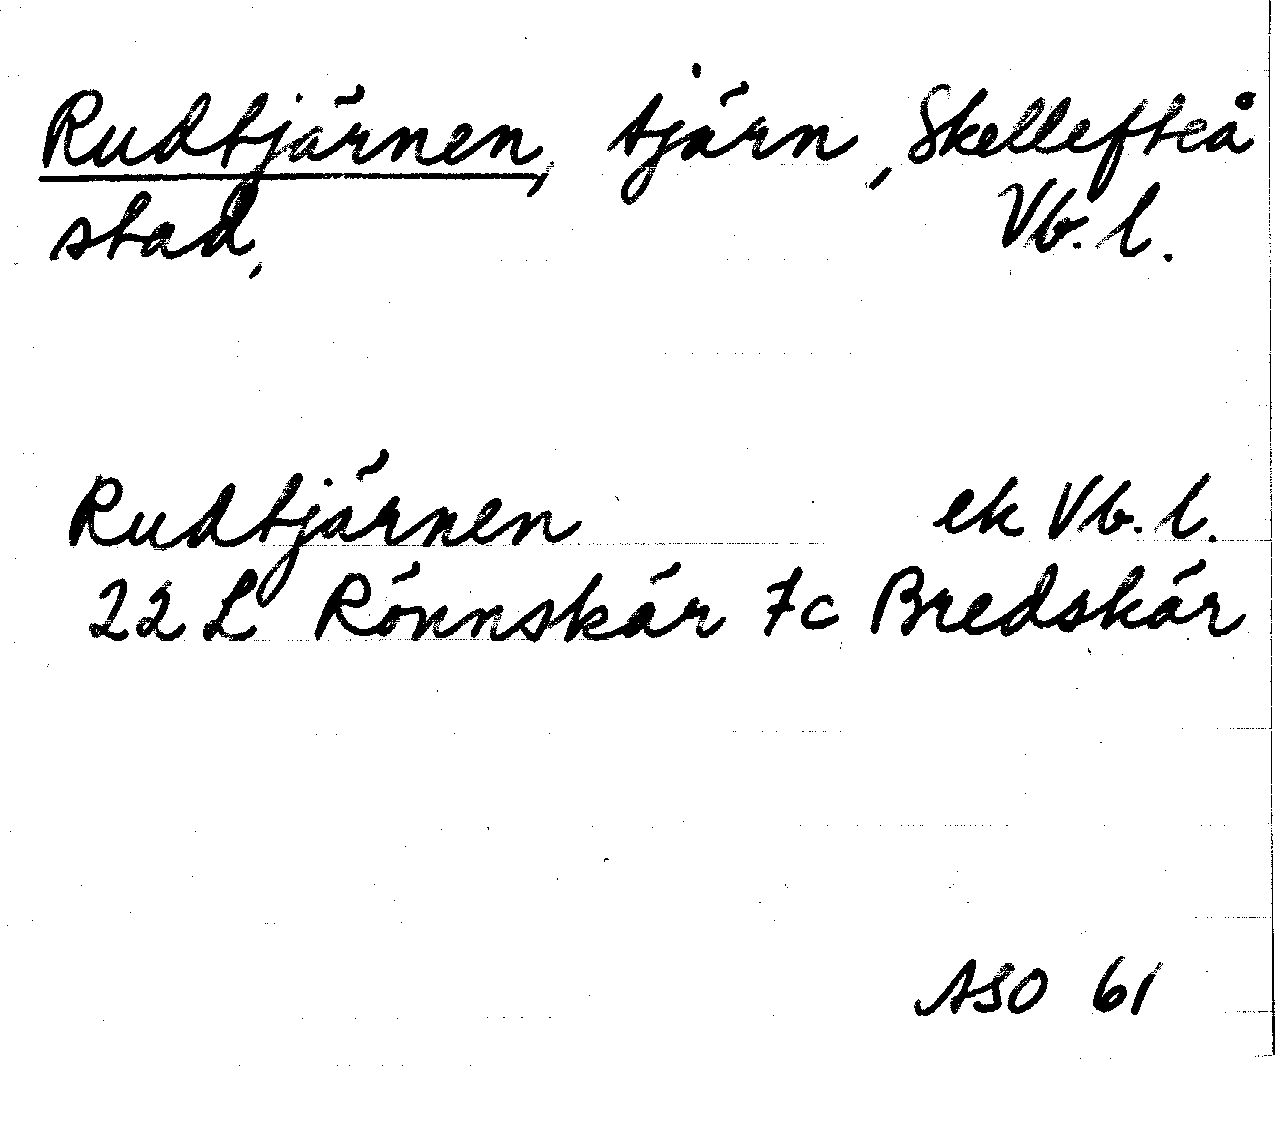 Rudtjärnen, tjärn, Skellefteå
stad, Vb. l.
Rudtjärnen ek Vb. l.
22 L Rönnskär 7c Bredskär
ASO 61